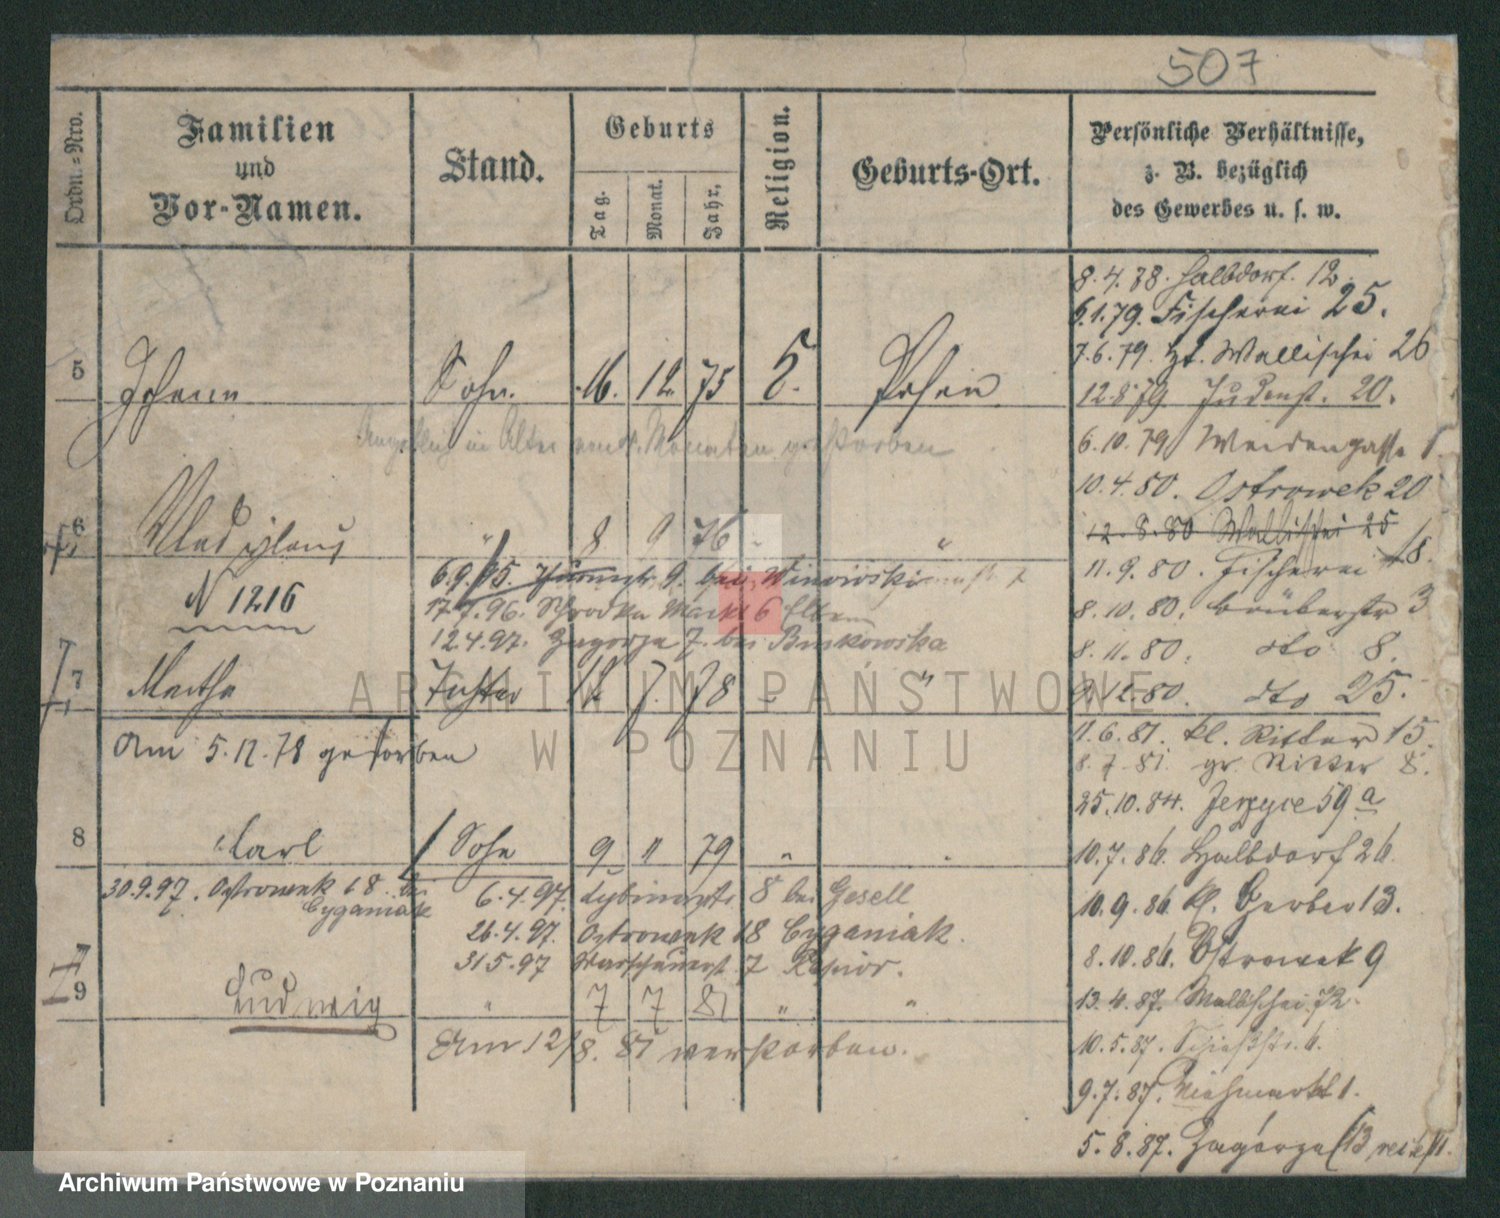 507
Ordn.=Nro.
Familien
und
Vor-Namen.
Stand.
Geburts
Tag. Monat. Jahr.
Religion.
Geburts-Ort.
Persönliche Verhältnisse,
z. B. bezüglich
des Gewerbes u. s. w.
5 Johann Sohn. 16. 12. 75 Posen
Angeblich im Alter von Monaten gestorben
6 Wladislaus " 8 9 76 " "
N 1216
6.9.95. 9. bei Winiwski
17.7.96. Schrodka Markt 6 Eltern
12.4.97. Zagorze 7. bei Buskowska
7 Martha Tochter 7. 78 " "
Am 5.12.78 gestorben
8 Carl Sohn 9 11 79 " "
30.9.97. Ostrowek 18 bei
Cyganiak
6.4.97. 8 bei Gesell
26.4.97. Ostrowek 18 Cyganiak.
31.5.97 Warschauerst. 7
9 Ludwig " 7 7 81 " "
Am 12/8. 81 verstorben.
8.4.78. Halbdorf. 12
6.1.79. Fischerei 25.
7.6.79. Wallischei 26
12.8.79. Judenst. 20.
6.10.79 Weidengasse 1
10.4.80. Ostrowek 20
12.8.80 Wallischei 25
11.9.80. Fischerei 18.
8.10.80. 3
8.11.80. dto 8.
12.80. dto 25.
1.6.81. kl. Ritter 15.
8.7.81. gr. Ritter 8.
25.10.84. Jerzyce 59 a
10.7.86. Halbdorf 26.
10.9.86. kl. Gerber 13.
8.10.86. Ostrowek 9
13.4.87. Wallischei 72.
10.5.87. Schießstr. 6.
9.7.87. Viehmarkt 1.
5.8.87. Zagorze 13
ARCHIWUM PAŃSTWOWE
W POZNANIU
Archiwum Państwowe w Poznaniu